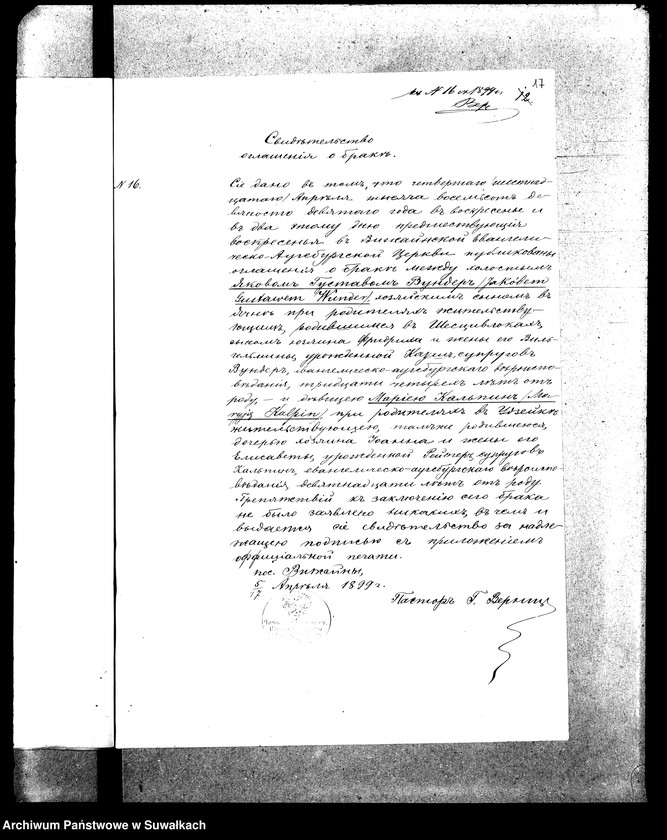 17
къ N 16 от 1899 г.
Вер
Свидѣтельство
оглашенія о бракѣ.
N 16.
Се дано въ томъ, что четвертаго /шестнад-
цатаго/ Апрѣля тысяча восемьсотъ де-
вяносто девятаго года въ воскресенье и
въ два этому дню предшествующія
воскресенья въ Вижайнской евангели-
ческо-Аугсбургской Церкви публикованы
оглашенія о бракѣ между холостымъ
Яковомъ Густавомъ Вундеръ /Jakóbem
Gustawem Wunder/, хозяйскимъ сыномъ въ
при родителяхъ жительству-
ющимъ, родившимся въ Шесцивлокахъ,
сыномъ хозяина Фридриха и жены его Виль-
гельмины, урожденной супруговъ
Вундеръ, евангелическо-аугсбургскаго вѣроиспо-
вѣданія, тридцати четырехъ лѣтъ отъ
роду, — и дѣвицею Маріею Кальпинъ /Ma-
ryją Kalpin/, при родителяхъ въ
жительствующею, тамъ же родившеюся,
дочерью хозяина Іоанна и жены его
Елисаветы, урожденной супруговъ
Кальпинъ, евангелическо-аугсбургскаго вѣроиспо-
вѣданія, девятнадцати лѣтъ отъ роду.
Препятствій къ заключенію сего брака
не было заявлено никакихъ, въ чемъ и
выдается сіе свидѣтельство за надле-
жащею подписью съ приложеніемъ
оффиціальной печати.
пос. Вижайны,
5/17 Апрѣля 1899 г.
Пасторъ Г.
Archiwum Państwowe w Suwałkach